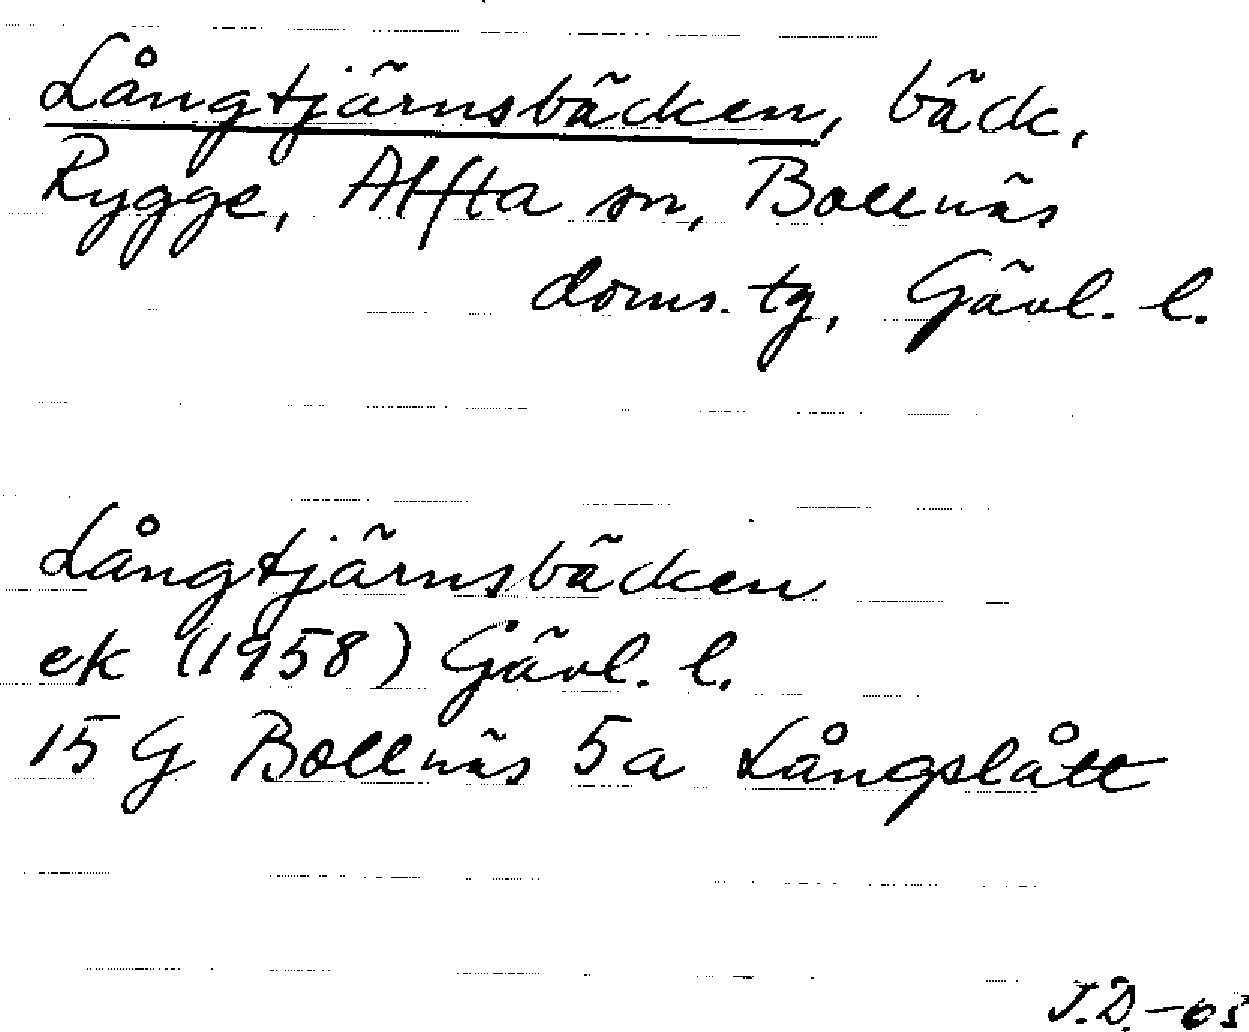 Långtjärnsbäcken, bäck,
Rygge, Alfta sn, Bollnäs
doms. tg, Gävl. l.
Långtjärnsbäcken
ek (1958) Gävl. l.
15 G Bollnäs 5a Långslått
J.D. -65